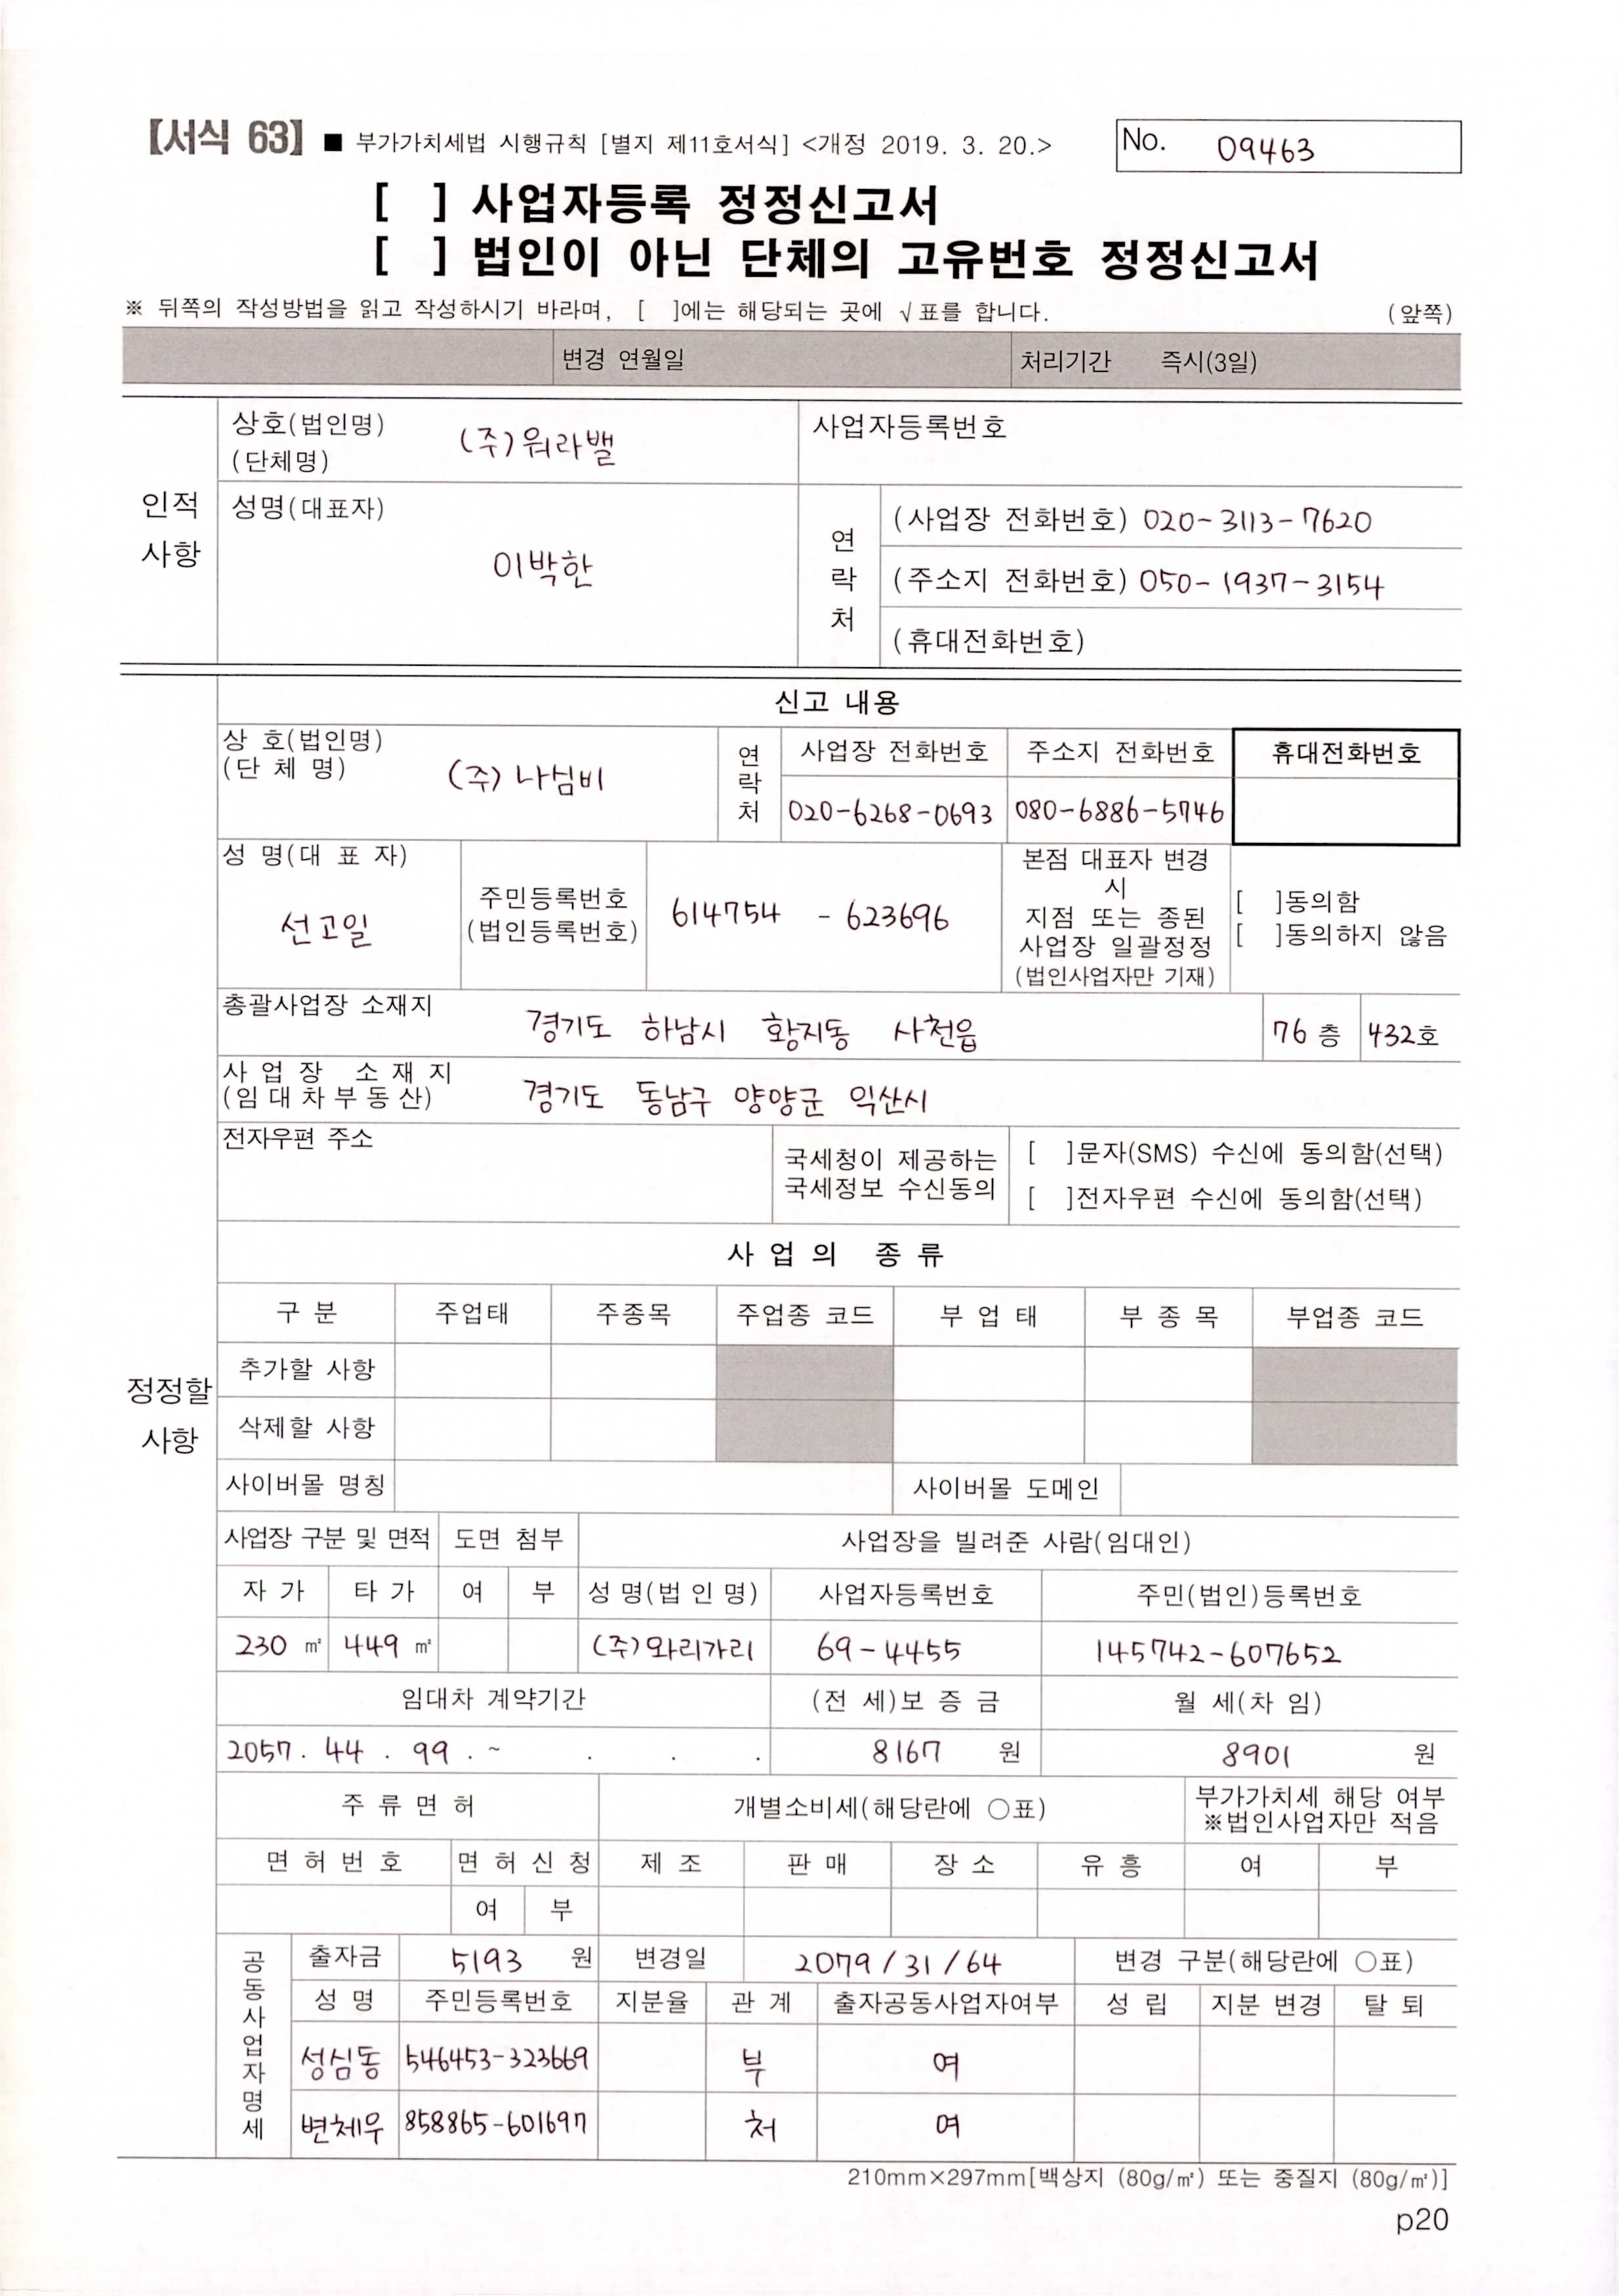 【서식 63】 ■ 부가가치세법 시행규칙 [별지 제11호서식] <개정 2019. 3. 20.>
No. 09463
[ ] 사업자등록 정정신고서
[ ] 법인이 아닌 단체의 고유번호 정정신고서
※ 뒤쪽의 작성방법을 읽고 작성하시기 바라며, [ ]에는 해당되는 곳에 √표를 합니다. (앞쪽)
변경 연월일 처리기간 즉시(3일)
인적 사항
상호(법인명) (단체명) (주)워라밸
사업자등록번호
성명(대표자) 이박한
연락처
(사업장 전화번호) 020-3113-7620
(주소지 전화번호) 050-1937-3154
(휴대전화번호)
정정할 사항
신고 내용
상 호(법인명) (단 체 명) (주)나심비
연락처
사업장 전화번호 주소지 전화번호 휴대전화번호
020-6268-0693 080-6886-5746
성 명(대 표 자) 선고일
주민등록번호 (법인등록번호) 614754 - 623696
본점 대표자 변경
시
지점 또는 종된
사업장 일괄정정
(법인사업자만 기재)
[ ]동의함
[ ]동의하지 않음
총괄사업장 소재지 경기도 하남시 황지동 사천읍 76 층 432호
사 업 장 소 재 지
(임 대 차 부 동 산) 경기도 동남구 양양군 익산시
전자우편 주소
국세청이 제공하는
국세정보 수신동의
[ ]문자(SMS) 수신에 동의함(선택)
[ ]전자우편 수신에 동의함(선택)
사 업 의 종 류
구 분 주업태 주종목 주업종 코드 부 업 태 부 종 목 부업종 코드
추가할 사항
삭제할 사항
사이버몰 명칭 사이버몰 도메인
사업장 구분 및 면적 도면 첨부 사업장을 빌려준 사람(임대인)
자 가 타 가 여 부 성 명(법 인 명) 사업자등록번호 주민(법인)등록번호
230 ㎡ 449 ㎡ (주)와리가리 69-4455 145742-607652
임대차 계약기간 (전 세)보 증 금 월 세(차 임)
2057. 44 . 99 . ~ . . . 8167 원 8901 원
주 류 면 허 개별소비세(해당란에 ○표) 부가가치세 해당 여부
※법인사업자만 적음
면 허 번 호 면 허 신 청 제 조 판 매 장 소 유 흥 여 부
여 부
공동사업자명세
출자금 5193 원 변경일 2079/31/64 변경 구분(해당란에 ○표)
성 명 주민등록번호 지분율 관 계 출자공동사업자여부 성 립 지분 변경 탈 퇴
성심동 546453-323669 부 여
변체우 858865-601697 처 여
210mm×297mm[백상지 (80g/㎡) 또는 중질지 (80g/㎡)]
p20